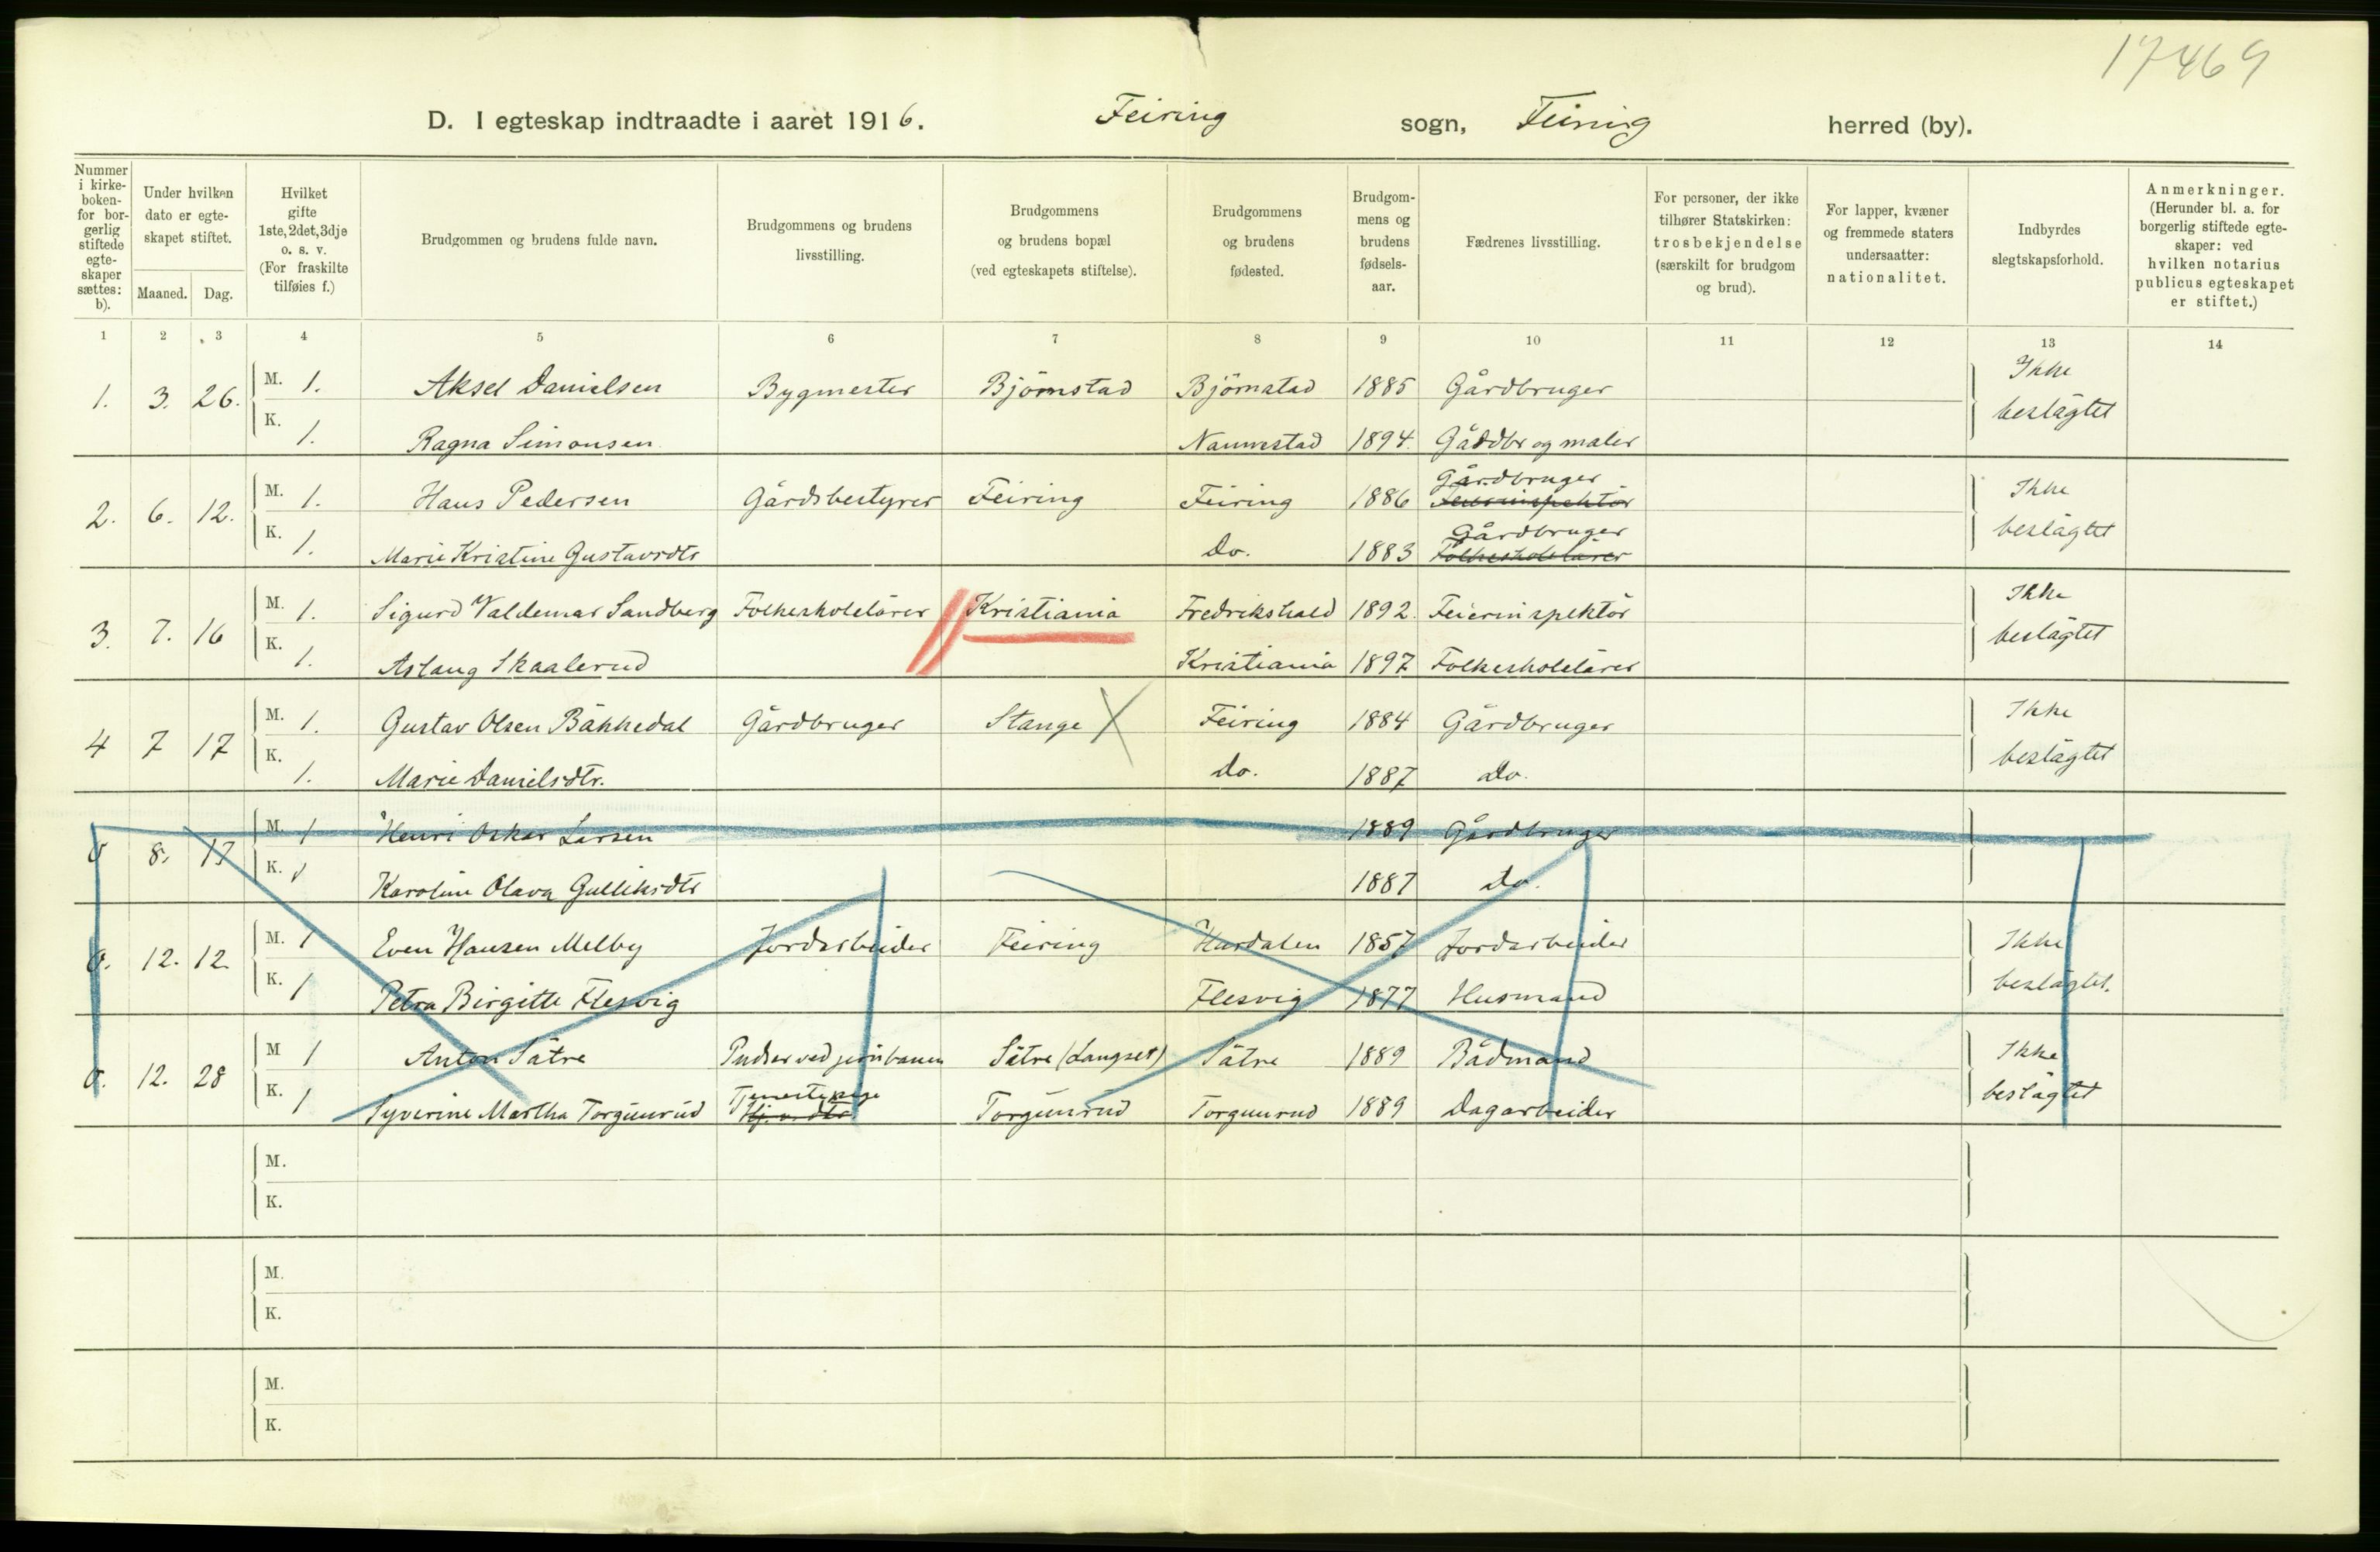 17469
D. I egteskap indtraadte i aaret 1916. Feiring sogn, Feiring herred (by).
Nummer i kirke- boken- for bor- gerlig stiftede egte- skaper sættes: b).
Under hvilken dato er egte- skapet stiftet.
Maaned. Dag.
Hvilket gifte 1ste, 2det, 3dje o. s. v. (For fraskilte tilføies f.)
Brudgommen og brudens fulde navn.
Brudgommens og brudens livsstilling.
Brudgommens og brudens bopæl (ved egteskapets stiftelse).
Brudgommens og brudens fødested.
Brudgom- mens og brudens fødsels- aar.
Fædrenes livsstilling.
For personer, der ikke tilhører Statskirken: trosbekjendelse (særskilt for brudgom og brud).
For lapper, kvæner og fremmede staters undersaatter: nationalitet.
Indbyrdes slegtskapsforhold.
Anmerkninger. (Herunder bl. a. for borgerlig stiftede egte- skaper: ved hvilken notarius publicus egteskapet er stiftet.)
1 2 3 4 5 6 7 8 9 10 11 12 13 14
1. 3. 26. M. 1. Aksel Danielsen Bygmester Björnstad Björnstad 1885 Gårdbruger Ikke
K. 1. Ragna Simonsen Nannestad 1894. Gåddbr og maler beslägtet
Gårdbruger
2. 6. 12. M. 1. Hans Pedersen Gårdsbestyrer Feiring Feiring 1886 Feierinspektör Ikke
Gårdbruger
K. 1. Marie Kristine Gustavsdtr Do. 1883 Folkeskolelärer beslägtet
3. 7. 16 M. 1. Sigurd Valdemar Sandberg Folkeskolelärer Kristiania Fredrikshald 1892. Feierinspektör Ikke
K. 1. Aslaug Skaalerud Kristiania 1897 Folkeskolelärer beslägtet
4 7 17 M. 1. Gustav Olsen Bäkkedal Gårdbruger Stange X Feiring 1884 Gårdbruger Ikke
K. 1. Marie Danielsdtr. Do. 1887 Do. beslägtet
0 8. 17 M. 1 Henri Oskar Larsen 1889 Gårdbruger
K. 1 Karoline Olava Gulliksdtr 1887 Do.
0. 12. 12. M. 1 Even Hansen Melby Jordarbeider Feiring Hurdalen 1857 Jordarbeider Ikke
K. 1 Petra Birgitte Flesvig Flesvig 1877 Husmand beslägtet.
0. 12. 28 M 1 Anton Sätre Pudser ved jernbanen Sätre (Langset) Sätre 1889 Bådmand Ikke
Tjenestepige
K. 1 Syverine Martha Torgunrud Torgunrud Torgunrud 1889 Dagarbeider beslägtet
M.
K.
M.
K.
M.
K.